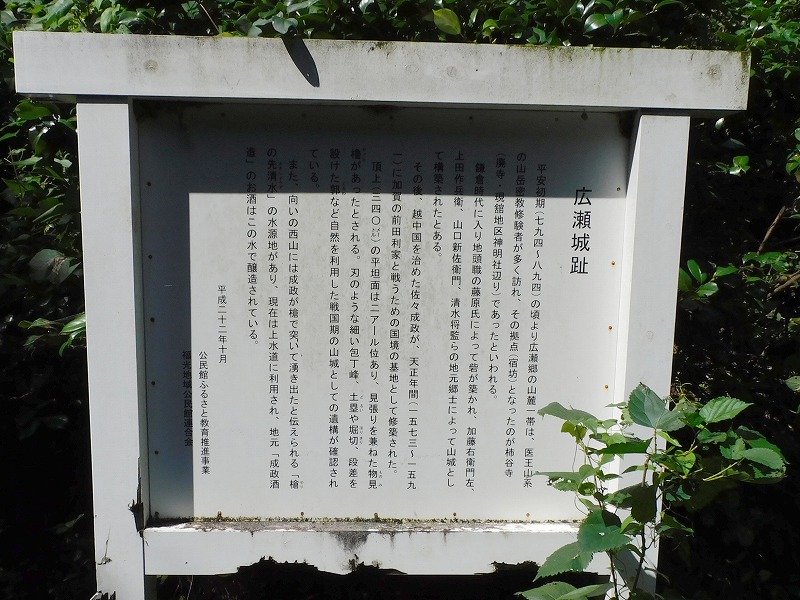 広瀬城趾
平安初期(七九四～八九四)の頃より広瀬郷の山麓一帯は、医王山系
の山岳密教修験者が多く訪れ、その拠点(宿坊)となったのが柿谷寺
(廃寺・現舘地区神明社辺り)であったといわれる。
鎌倉時代に入り地頭職の藤原氏によって砦が築かれ、加藤右衛門左、
上田作兵衛、山口新佐衛門、清水将監らの地元郷士によって山城とし
て構築されたとある。
その後、越中国を治めた佐々成政が、天正年間(一五七三～一五九
一)に加賀の前田利家と戦うための国境の基地として修築された。
頂上(三四〇㍍)の平坦面は二アール位あり、見張りを兼ねた物見
櫓があったとされる。刃のような細い包丁峰、土塁や堀切、段差を
設けた郭など自然を利用した戦国期の山城としての遺構が確認され
ている。
また、向いの西山には成政が槍で突いて湧き出たと伝えられる「槍
の先清水」の水源地があり、現在は上水道に利用され、地元「成政酒
造」のお酒はこの水で醸造されている。
平成二十二年十月
公民館ふるさと教育推進事業
福光地域公民館連合会